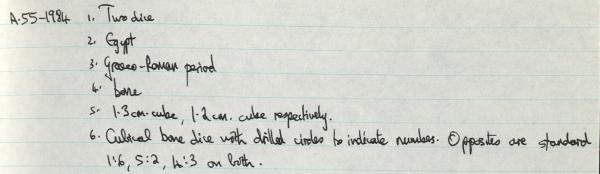 A.55-1984 1. Two dice
2. Egypt
3. Graeco-Roman period
4. bone
5. 1.3cm. cube, 1.2cm. cube respectively.
6. Cubical bone dice with drilled circles to indicate numbers. Opposites are standard
1:6, 5:2, 4:3 on both.